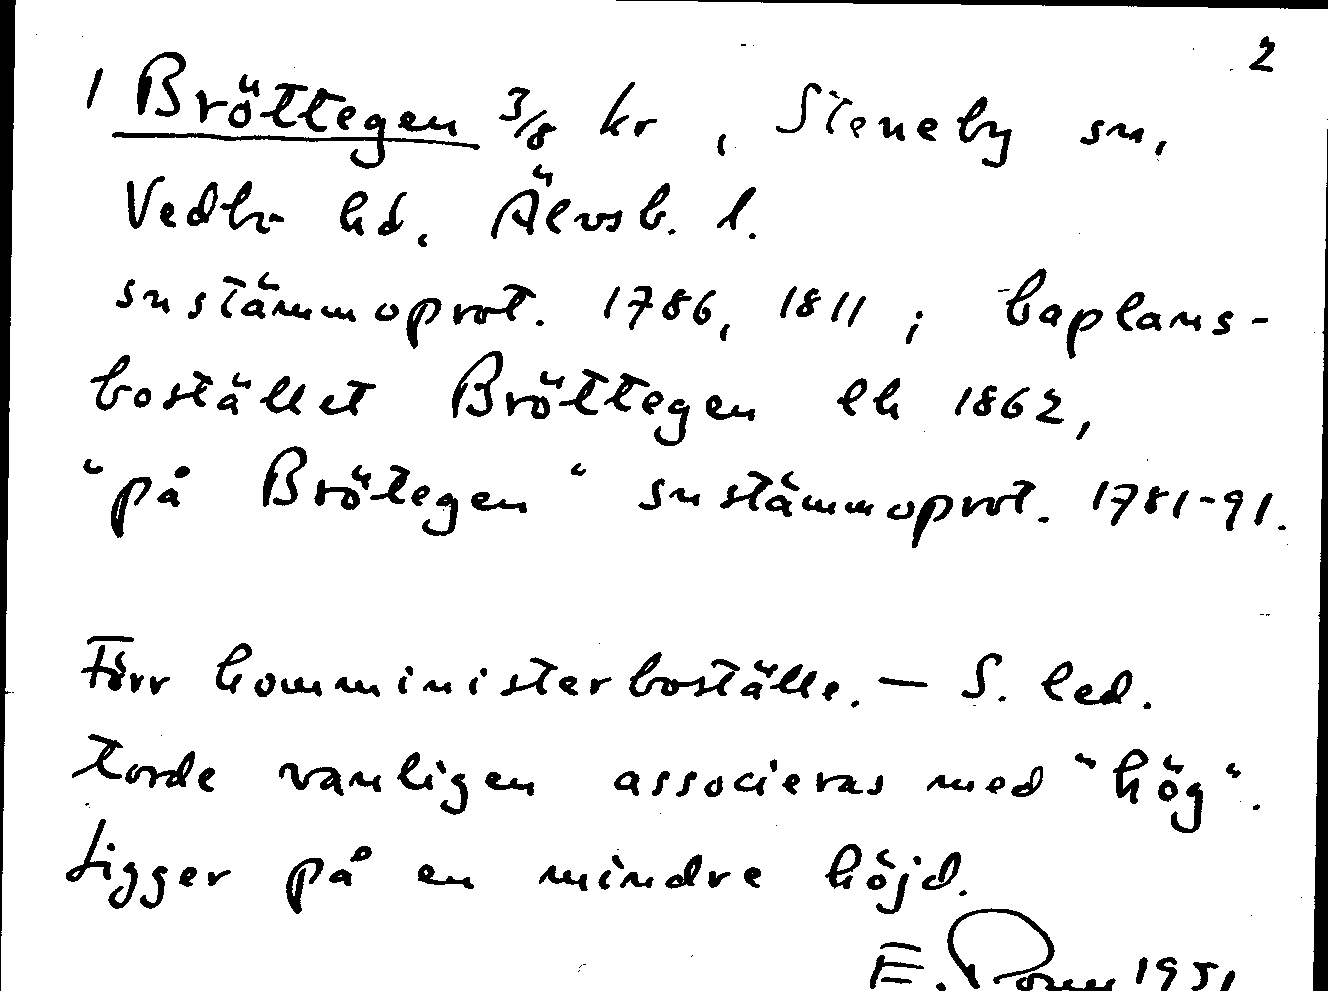 2
1 Bröttegen 3/8 kr, Steneby sn,
Vedbo hd, Älvsb. l.
sn stämmoprot. 1786, 1811; kaplans-
bostället Bröttegen lh 1862,
"på Brötegen" sn stämmoprot. 1781-91.
Förr komministerboställe. — S. led.
torde vanligen associeras med "hög".
Ligger på en mindre höjd.
E. 1951